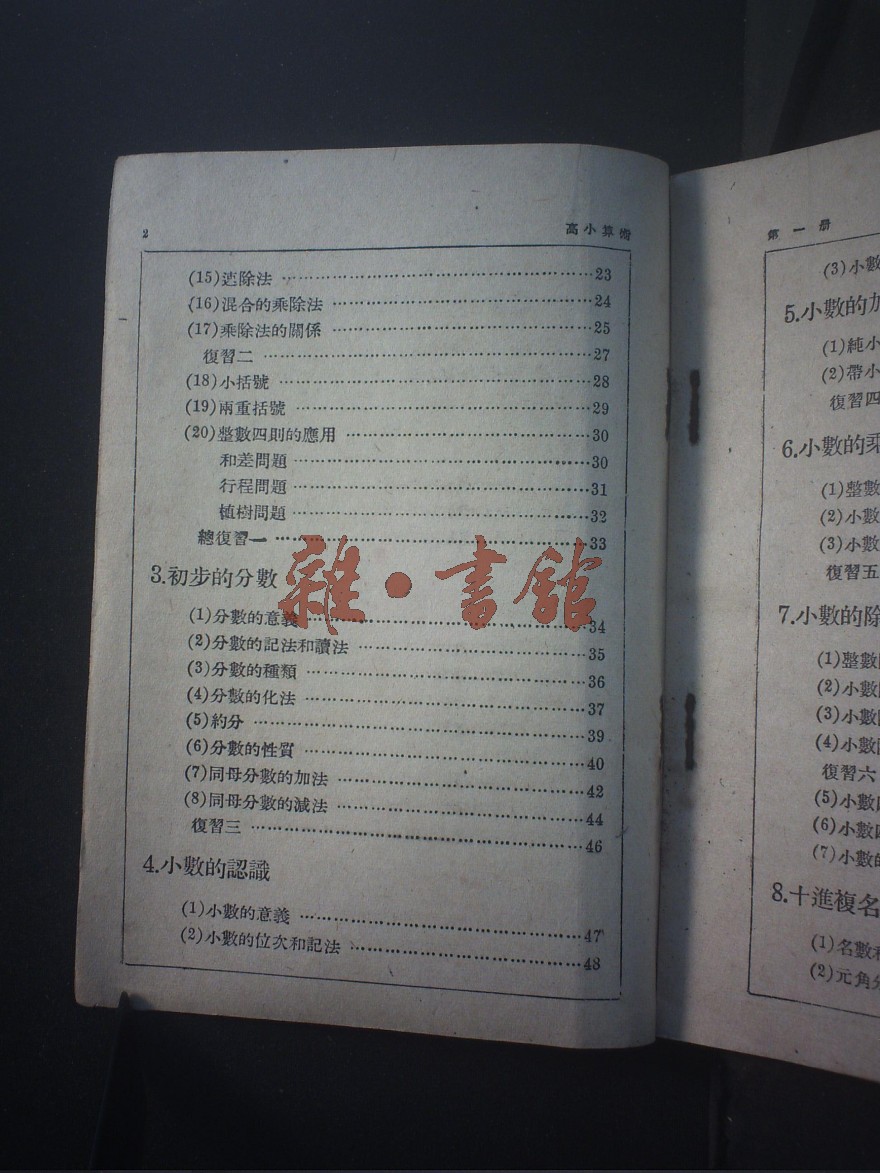 2
高小算術
(15)連除法 23
(16)混合的乘除法 24
(17)乘除法的關係 25
復習二 27
(18)小括號 28
(19)兩重括號 29
(20)整數四則的應用 30
和差問題 30
行程問題 31
植樹問題 32
總復習一 33
3.初步的分數
(1)分數的意義 34
(2)分數的記法和讀法 35
(3)分數的種類 36
(4)分數的化法 37
(5)約分 39
(6)分數的性質 40
(7)同母分數的加法 42
(8)同母分數的減法 44
復習三 46
4.小數的認識
(1)小數的意義 47
(2)小數的位次和記法 48
雜·書館
第一册
(3)小數
5.小數的加
(1)純小
(2)帶小
復習四
6.小數的乘
(1)整數
(2)小數
(3)小數
復習五
7.小數的除
(1)整數
(2)小數
(3)小數
(4)小數
復習六
(5)小數
(6)小數
(7)小數的
8.十進複名
(1)名數和
(2)元角分